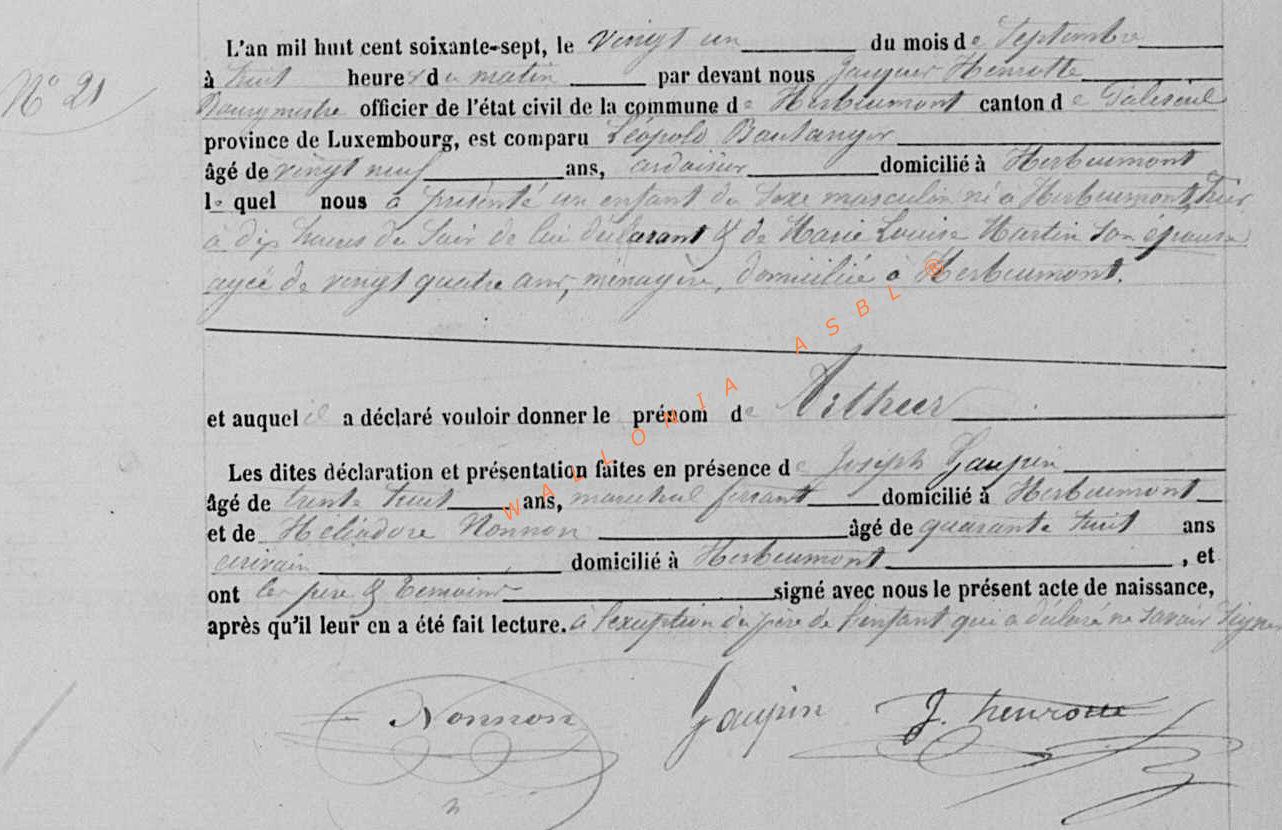 N° 21
L'an mil huit cent soixante-sept, le vingt un du mois de Septembre
à huit heures du matin par devant nous Jacques Henrotte
Bourgmestre officier de l'état civil de la commune de Herbeumont canton de Paliseul
province de Luxembourg, est comparu Léopold Boulanger
âgé de vingt neuf ans, ardoisier domicilié à Herbeumont
lequel nous a présenté un enfant du sexe masculin né à Herbeumont, hier
à dix heures du soir de lui déclarant & de Marie Louise Martin son épouse
agée de vingt quatre ans, ménagère, domiciliée à Herbeumont.
et auquel il a déclaré vouloir donner le prénom de Arthur
Les dites déclaration et présentation faites en présence de Joseph Gaupin
âgé de trente huit ans, marechal ferrant domicilié à Herbeumont
et de Heliodore Nonnon âgé de quarante huit ans
écrivain domicilié à Herbeumont, et
ont les père & temoins signé avec nous le présent acte de naissance,
après qu'il leur en a été fait lecture. à l'exception du père de l'enfant qui a déclaré ne savoir signer
Nonnon Gaupin J. henrotte
WALLONIA ASBL ®